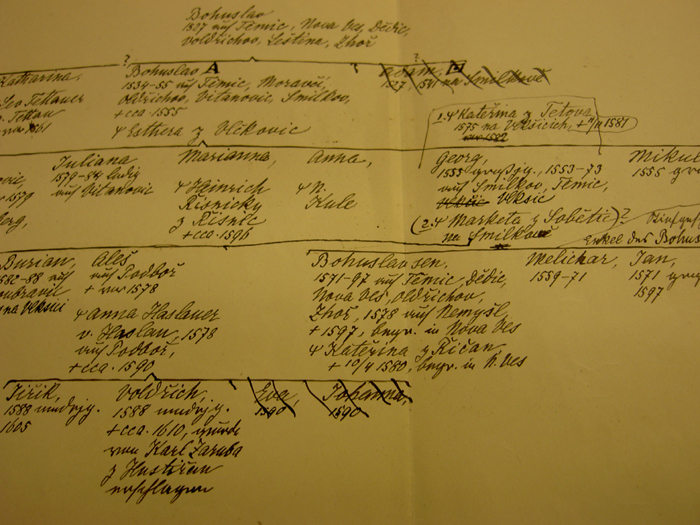 Bohuslav
1527 auf Temic, Nova Ves, Dědic,
Voldřichov, Leština, Zhoř
?
Katharina,
Leo Tettauer
v. Tettau
Bohuslav A
1539-55 auf Temic, Moravči,
Oldřichov, Vitanovic, Smilkov,
+ cca 1555
Esthera z Vlčkovic
?
Adam, B
1527, 1541 na Smilkově
1. Kateřina z Tetova
1575 na Vlksicich, + 1581
Juliana
1579-84 ledig
auf Vitanovic
Marianna,
Heinrich
Řisnicky
z Řisnic
+ cca. 1596
Anna,
N.
Kule
Georg,
1553 grossjg., 1553-73
auf Smilkov, Temic,
Vlksic
(2. Marketa z Sobětic)?
na Smilkově
Mikul
1555
+ 1579
berg,
Enkel des Bohus
Burian,
1582-88 auf
na Vlksici
Aleš
auf Podboř
+ vor 1578
Anna Haslauer
v. Haslau, 1578
auf Podboř,
+ cca. 1590
Bohuslav sen.
1571-97 auf Temic, Dědic,
Nova Ves, Oldřichov,
Zhoř, 1578 auf Nemyšl,
+ 1597, begr. in Nova Ves
Kateřina z Řičan
+ 10/4 1580, begr. in N. Ves
Melichar,
1559-71
Jan,
1571
1597
Jiřik,
1588 mindrjg.
1605
Voldřich,
1588 mindrjg.
+ cca. 1610, wurde
von Karl Zaruba
z Hustiřan
erschlagen
Eva,
1590
Johanna,
1590